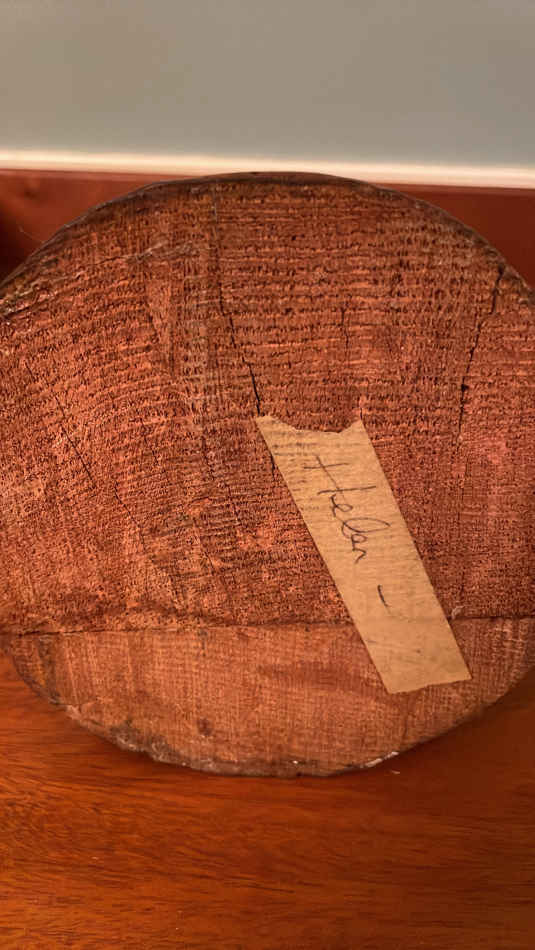 Helen -